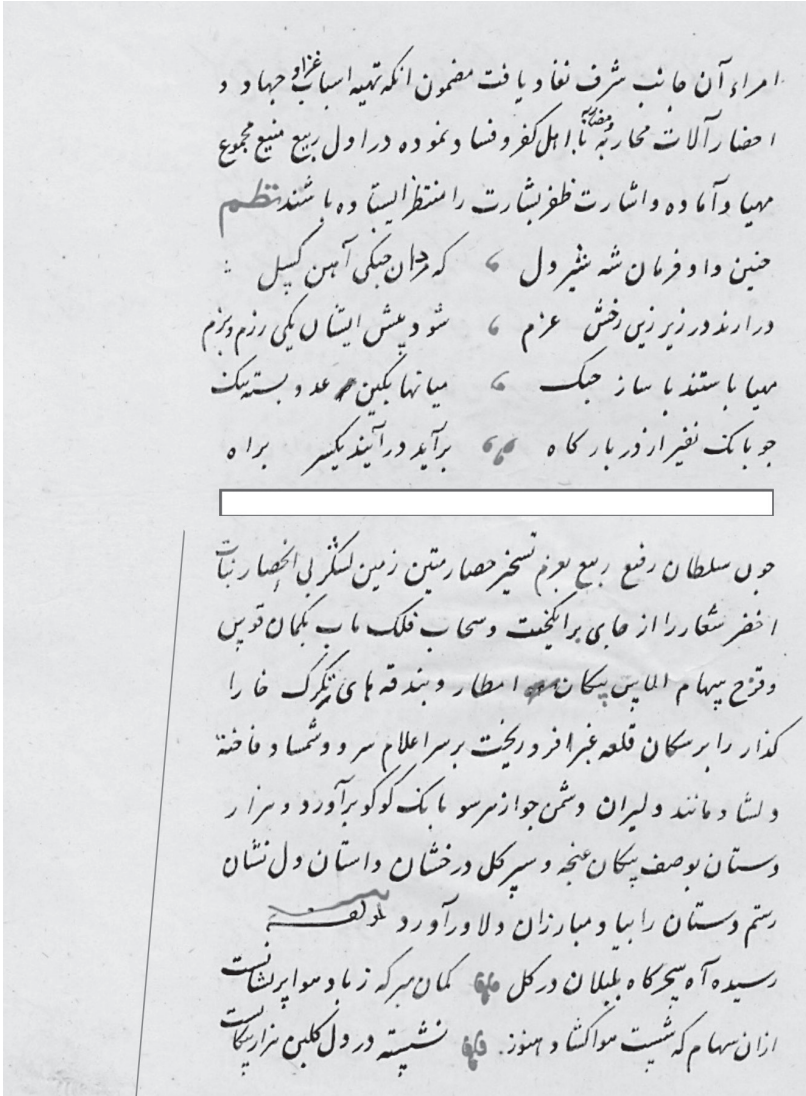 امراء آن جانب شرف نفاد یافت مضمون انکه تهیه اسباب غزا و جهاد و
احضار آلات محاربه و مضاربه با اهل کفر و فساد نموده در اول ربیع منیع مجموع
مهیا و آماده و اشارت ظفر بشارت را منتظر ایستاده باشند نظم
چنین داد فرمان شه شیر دل که مردان جنکی آهن کسل
درارند در زیر زین رخش عزم شود پیش ایشان یکی رزم و بزم
مهیا باستند با ساز جنک میانها بکین عدو بسته تنک
جو بانک نفیر از در بارکاه برآید درآیند یکسر براه
چون سلطان رفیع ربیع بعزم تسخیر حصار متین زمین لشکر بی انحصار نبات
اخضر شعار را از جای برانکیخت و سحاب فلک ماب بکمان قوس
و قزح سهام الماس پیکان امطار و بندقه های تکرک خارا
کذار را بر سکان قلعه غبرا فرو ریخت بر سر اعلام سرو و شمشاد فاخته
دلشاد مانند دلیران دشمن جو از هر سو بانک کوکو برآورد و هزار
دستان بوصف پیکان غنچه و سپر کل درخشان داستان دل نشان
رستم دستان را بیاد مبارزان دلاور آورد لمولفه
رسیده آه سحرکاه بلبلان در کل کمان مبر که ز باد هوا پریشانست
ازان سهام که شست هوا کشاد هنوز نشسته در دل کلبن هزار پیکانست